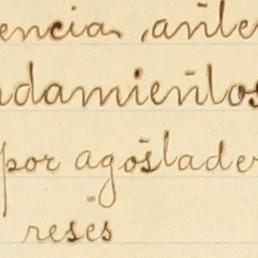 encia, ante
ndamientos
por agostader
reses